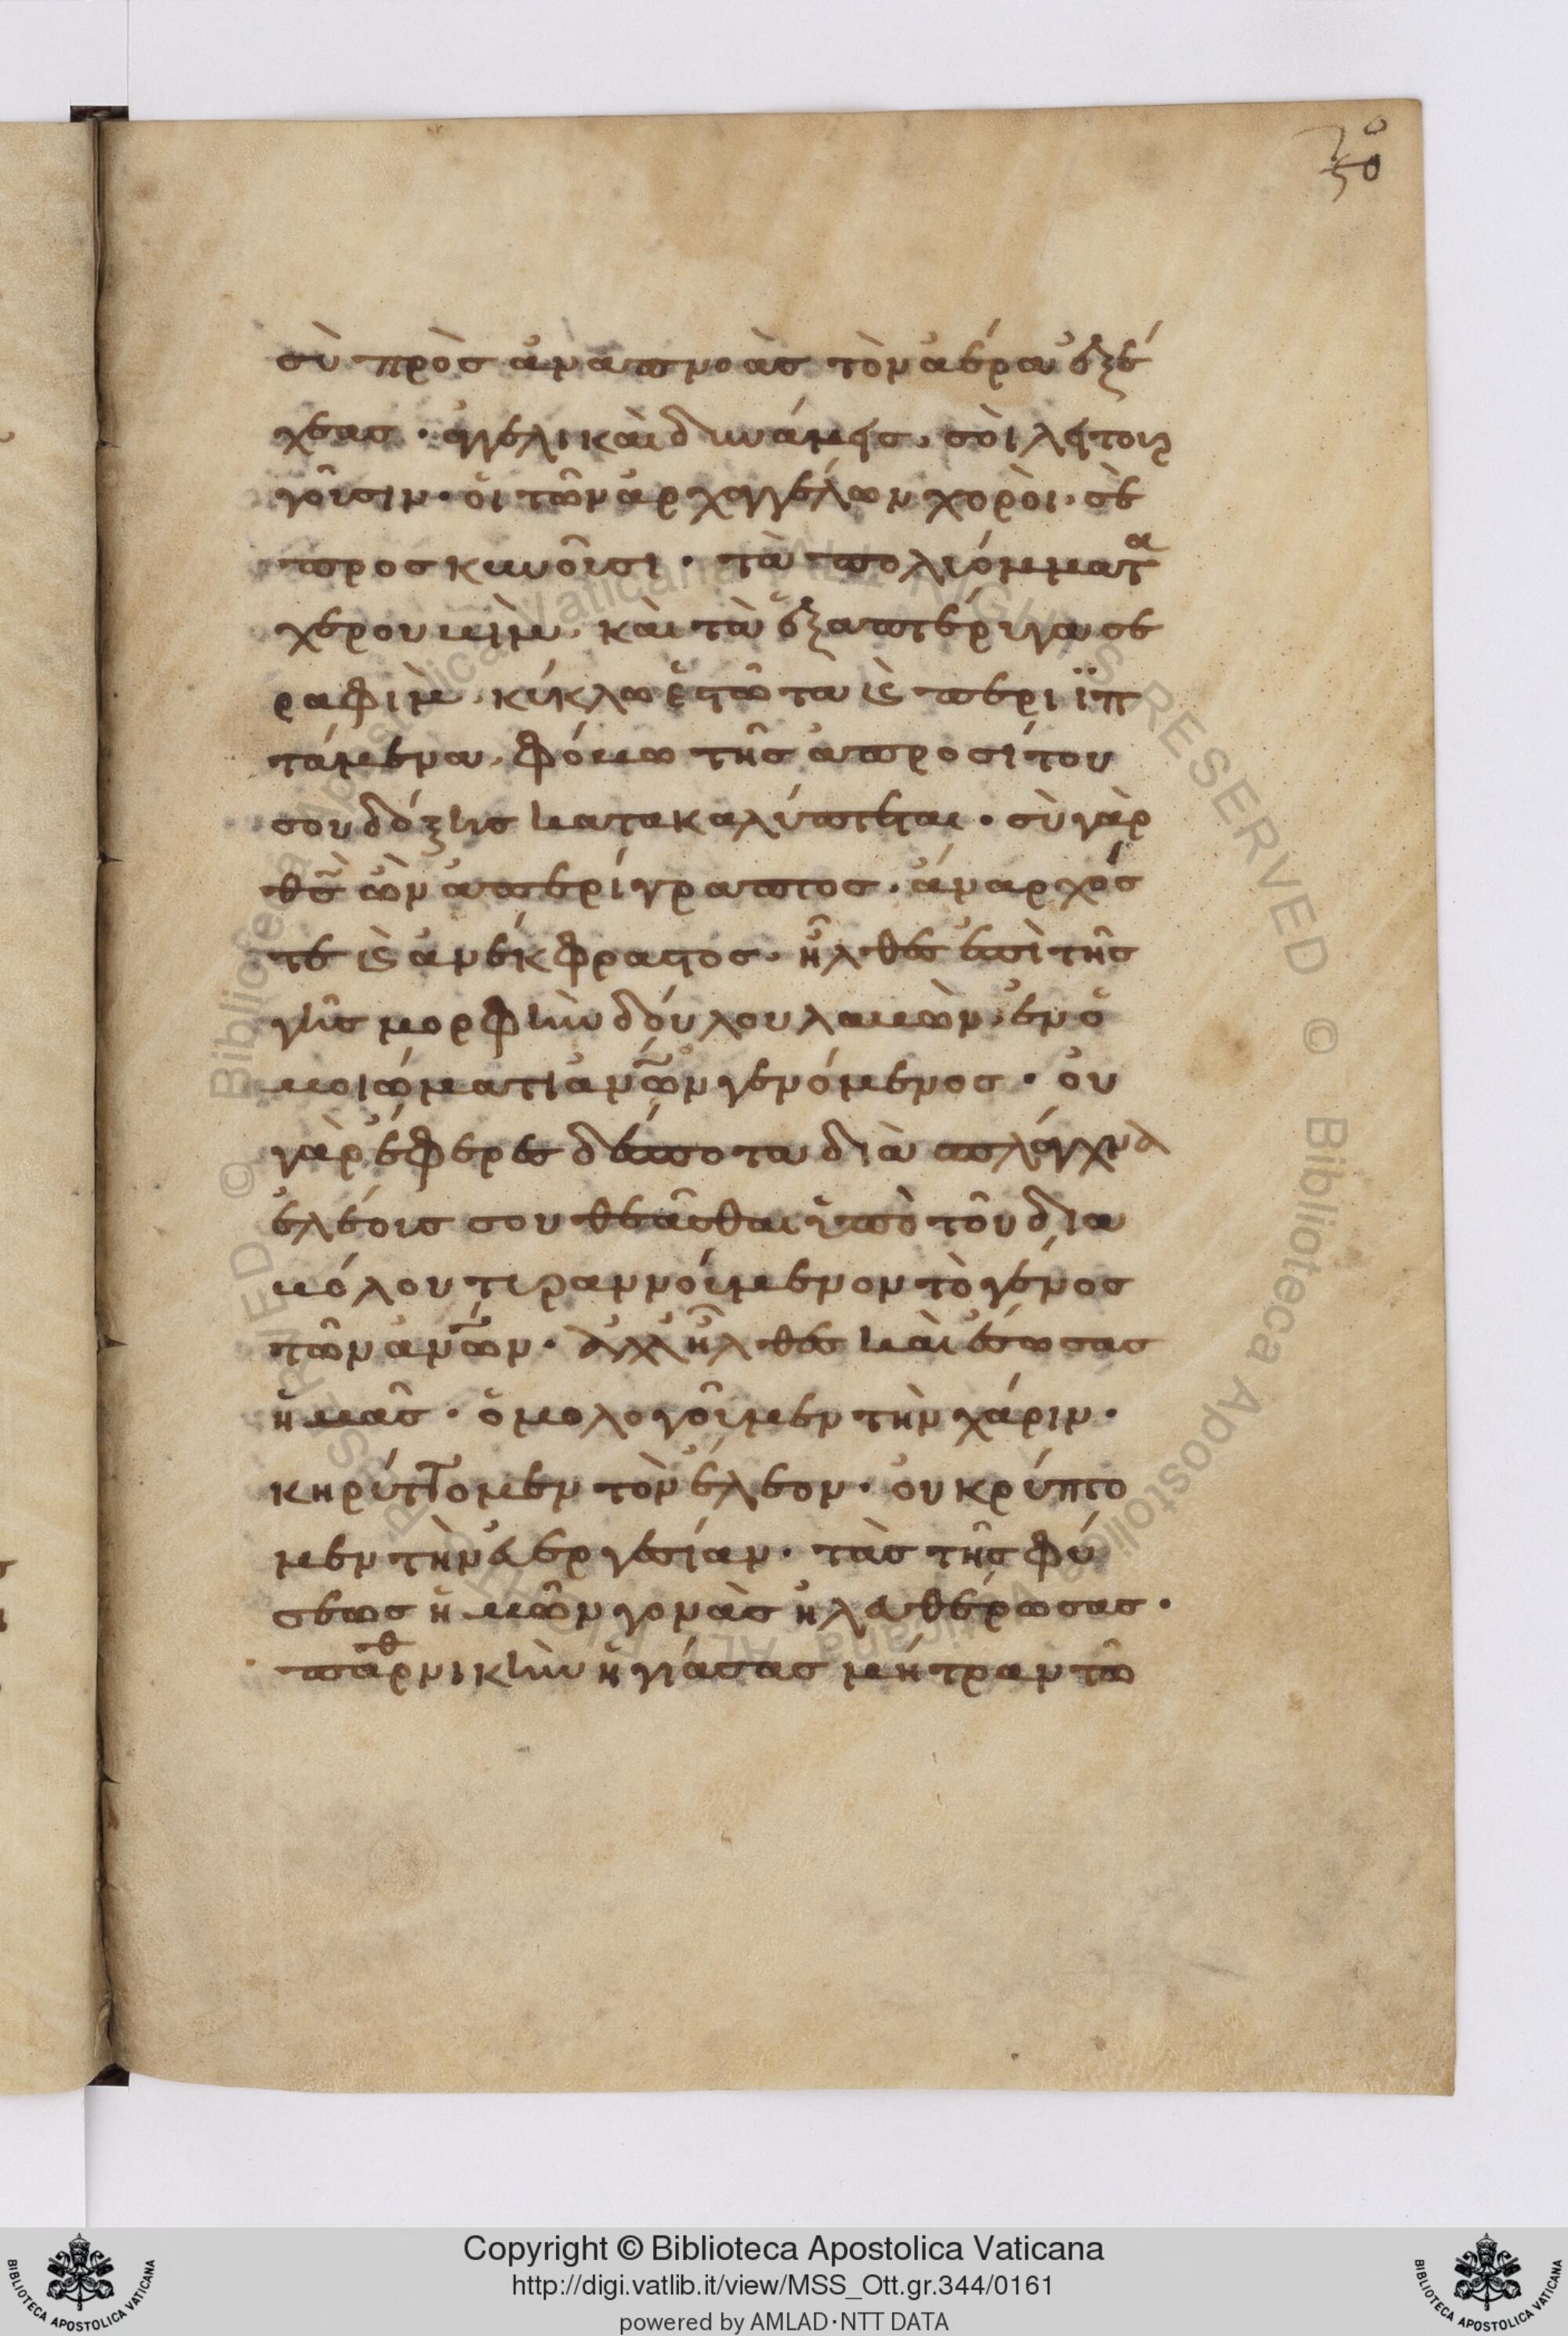 70
50
σὺ πρὸς ἀναπνοὰς τὸν ἀέρα ἐξέ
χεας · ἀγγελικαὶ δυνάμεις, σοὶ λειτουρ
γοῦσιν · οἱ τῶν ἀρχαγγέλων χοροὶ · σὲ
προσκυνοῦσι · τὰ πολυόμματα
χερουβὶμ, καὶ τὰ ἑξαπτέρυγα σε
ραφὶμ, κύκλω ἑστῶτα ϗ περιϊπ
τάμενα, φόβω τῆς ἀπροσίτου
σου δόξης κατακαλύπτεται · σὺ γὰρ
θς ὢν ἀπερίγραπτος, ἄναρχός
τε ϗ ἀνέκφραστος, ἦλθες ἐπὶ τῆς
γῆς μορφὴν δούλου λαβὼν, ἐν ὁ
μοιώματι ἀνων γενόμενος · οὐ
γὰρ ἔφερες δέσποτα διὰ σπλάγχνα
ἐλέους σου θεᾶσθαι ὑπὸ τοῦ δια
βόλου τυραννούμενον τὸ γένος
τῶν ἀνων · ἀλλ' ἦλθες καὶ ἔσωσας
ἡμᾶς · ὁμολογοῦμεν τὴν χάριν ·
κηρύττομεν τὸν ἔλεον · οὐ κρύπτο
μεν τὴν εὐεργεσίαν · τὰς τῆς φύ
σεως ἡμῶν γονὰς ἠλευθέρωσας ·
παρθνικὴν ἡγίασας μήτραν τῶ
Copyright © Biblioteca Apostolica Vaticana
http://digi.vatlib.it/view/MSS_Ott.gr.344/0161
powered by AMLAD·NTT DATA